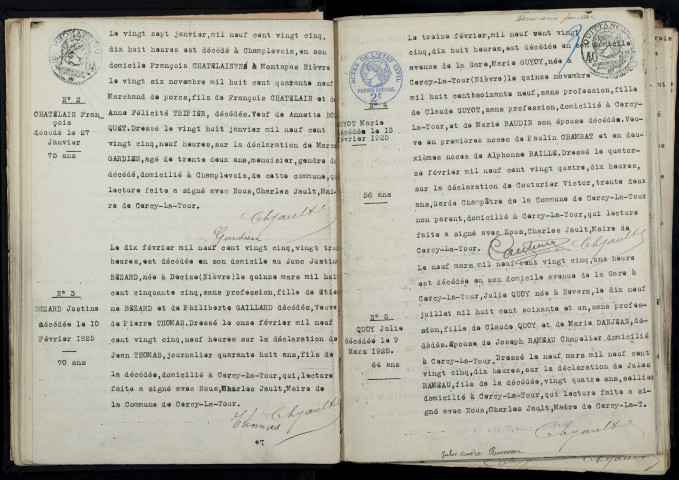 Le vingt sept janvier, mil neuf cent vingt cinq,
dix huit heures est décédé à Champlevois, en son
domicile François CHATELAIN né à Montapas Nièvre
le vingt six novembre mil huit cent quarante neuf
Marchand de porcs, fils de François CHATELAIN et de
Anne Félicité TRIPIER, décédés. Veuf de Annette
QUET. Dressé le vingt huit janvier mil neuf cent
vingt cinq, neuf heures, sur la déclaration de
GARDIEN, agé de trente deux ans, menuisier, gendre du
décédé, domicilié à Champlevois, de cette commune, qui
lecture faite a signé avec Nous, Charles Jault, Mai-
re de Cercy-La-Tour.
N° 2
CHATELAIN Fran
çois
décédé le 27
Janvier
75 ans
Gardien
Chjault
Le dix février mil neuf cent vingt cinq, vingt tro
heures, est décédée en son domicile au Jonc Justine
BEZARD, née à Decize (Nièvre) le quinze mars mil huit
cent cinquante cinq, sans profession, fille de Etien
ne BEZARD et de Philiberte GAILLARD décédés, Veuve
de Pierre THOMAS. Dressé le onze février mil neuf
cent vingt cinq, neuf heures sur la déclaration de
Jean THOMAS, journalier quarante huit ans, fils de
la décédée, domicilié à Cercy-La-Tour, qui, lecture
faite a signé avec Nous, Charles Jault, Maire de
la Commune de Cercy-La-Tour.
N° 3
BEZARD Justine
décédée le 10
Février 1925
70 ans
Thomas
Chjault
Le treize février, mil neuf cent vingt
cinq, dix huit heures, est décédée en son domicile
avenue de la Gare, Marie GUYOT, née à
Cercy-La-Tour (Nièvre) le quinze novembre
mil huit cent soixante neuf, sans profession, fille
de Claude GUYOT, sans profession, domicilié à Cercy-
La-Tour, et de Marie BAUDIN son épouse décédée. Veu-
ve en premières noces de Paulin CHAMBAT et en deu-
xièmes noces de Alphonse BAILLE. Dressé le quator-
ze février mil neuf cent vingt quatre, dix heures,
sur la déclaration de Couturier Victor, trente deux
ans, Garde Champêtre de la Commune de Cercy-La-Tour
non parent, domicilié à Cercy-La-Tour, qui lecture
faite a signé avec Nous, Charles Jault, Maire de
Cercy-La-Tour.
ACTES DE L'ETAT CIVIL
PAPIER SPECIAL
N° 4
GUYOT Marie
décédée le 13
février 1925
56 ans
Chjault
Le neuf mars mil neuf cent vingt cinq, une heure
est décédée en son domicile avenue de la Gare à
Cercy-La-Tour, Julie QUOY née à Nevers, le dix neuf
juillet mil huit cent soixante et un, sans profes-
sion, fille de Claude QUOY et de Marie DANJEAN, dé-
dédés. Epouse de Joseph RAMEAU Chapelier, domicilié
à Cercy-La-Tour. Dressé le neuf mars mil neuf cent
vingt cinq, dix heures, sur la déclaration de Jules
RAMEAU, fils de la décédée, vingt quatre ans, sellier
domicilié à Cercy-La-Tour, qui lecture faite a si-
gné avec Nous, Charles Jault, Maire de Cercy-La-T.
N° 5
QUOY Julie
décédée le 9
Mars 1925.
64 ans
Chjault
Jules André Rameau